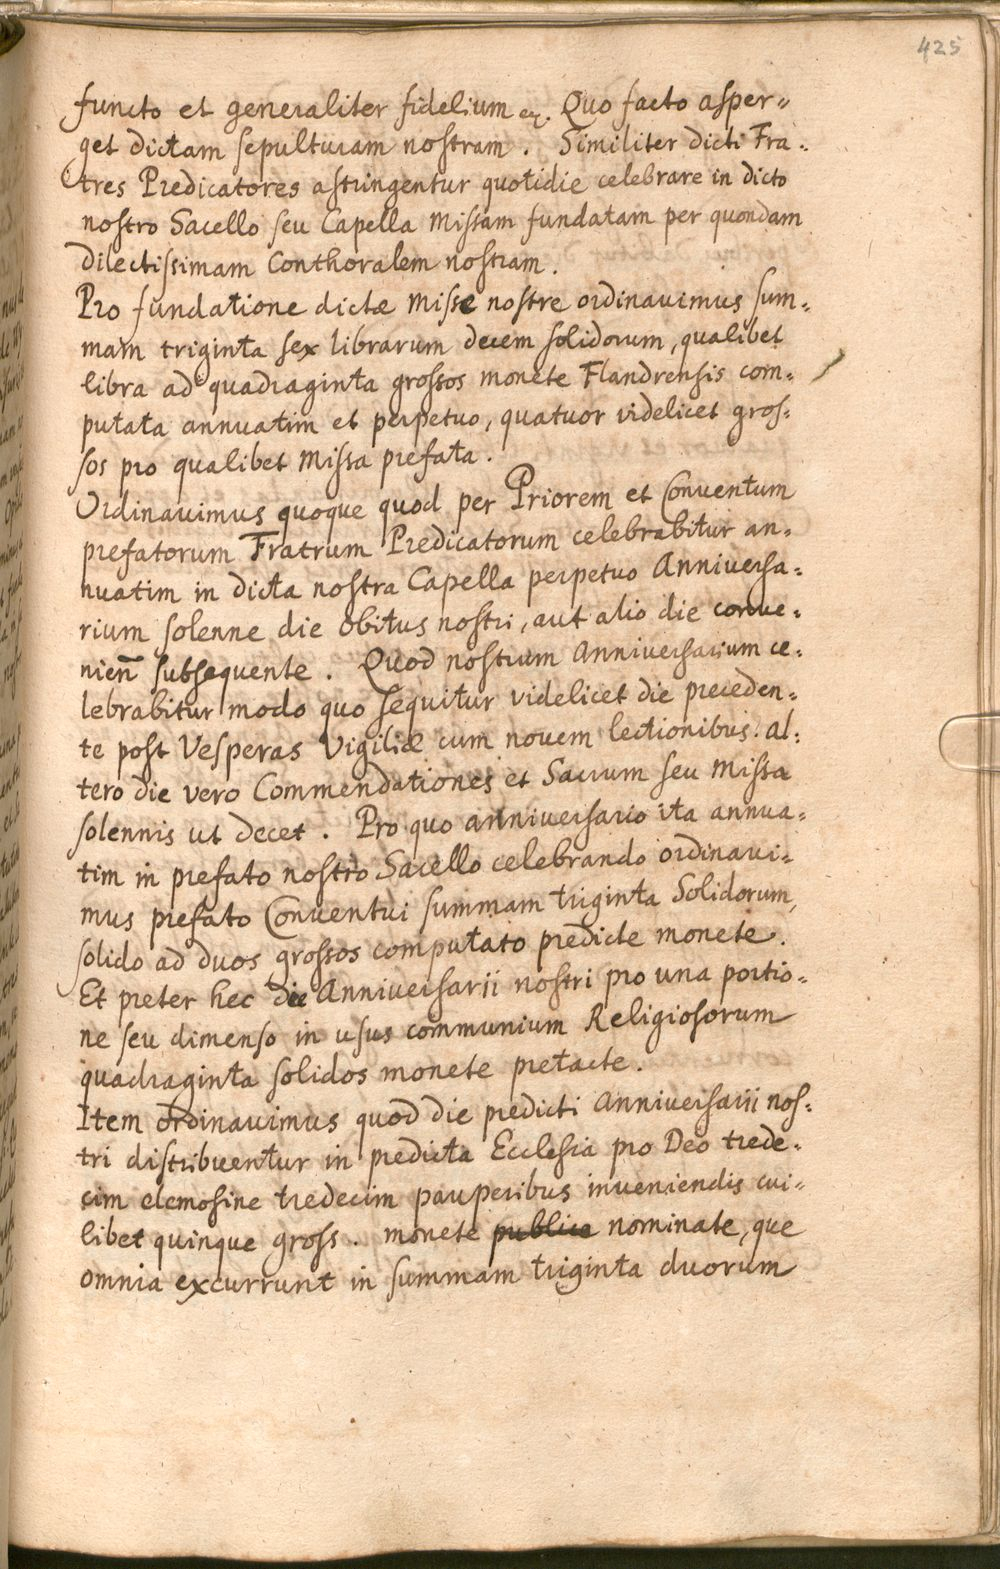 425
functo et generaliter fidelium etc. Quo facto asper=
get dictam sepulturam nostram. Similiter dicti Fra=
tres Predicatores astringentur quotidie celebrare in dicto
nostro Sacello seu Capella Missam fundatam per quondam
dilectissimam Conthoralem nostram.
Pro fundatione dictæ Misse nostre ordinavimus sum=
mam triginta sex librarum decem solidorum, qualibet
libra ad quadraginta grossos monete Flandrensis com=
putata annuatim et perpetuo, quatuor videlicet gros=
sos pro qualibet Missa prefata.
Ordinavimus quoque quod per Priorem et Conventum
prefatorum Fratrum Predicatorum celebrabitur an=
nuatim in dicta nostra Capella perpetuo Anniversa=
rium solenne die obitus nostri, aut alio die conve=
nien̄ subsequente. Quod nostrum Anniversarium ce=
lebrabitur modo quo sequitur videlicet die preceden=
te post Vesperas Vigiliæ cum novem lectionibus. al=
tero die vero Commendationes et Sacrum seu Missa
solennis ut decet. Pro quo anniversario ita annua=
tim in prefato nostro Sacello celebrando ordinavi=
mus prefato Conventui summam triginta Solidorum,
solido ad duos grossos computato predicte monete.
Et preter hec die Anniversarii nostri pro una portio=
ne seu dimenso in usus communium Religiosorum
quadraginta solidos monete pretacte.
Item ordinavimus quod die predicti Anniversarii nos=
tri distribuentur in predicta Ecclesia pro Deo trede=
cim elemosine tredecim pauperibus inveniendis cui=
libet quinque gross. monete publice nominate, que
omnia excurrunt in summam triginta duorum